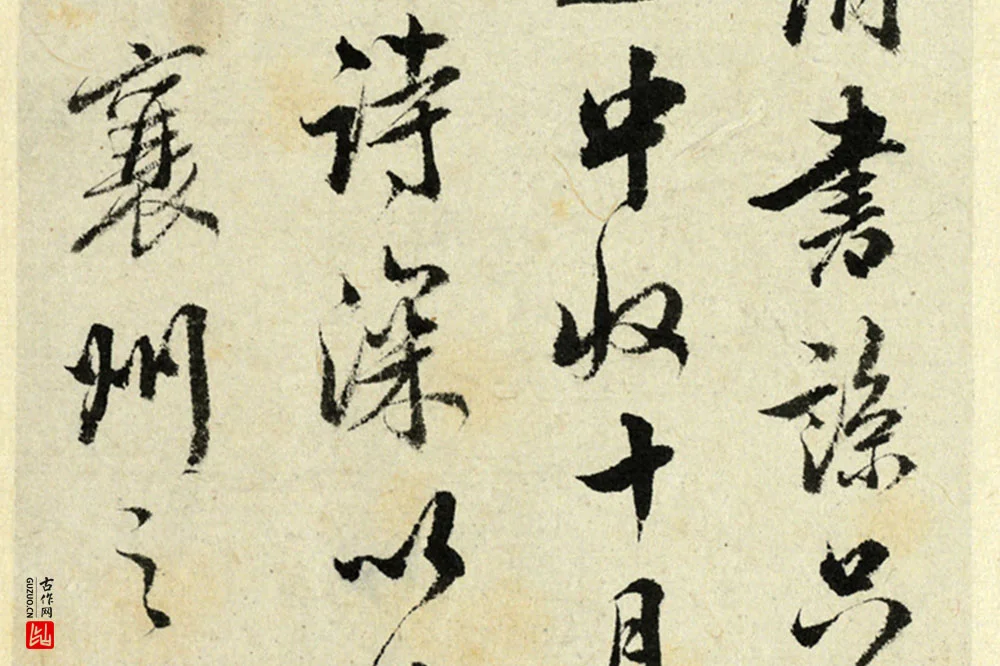 書只
中收十月
詩深以
襄州之
古作网
GUZUO.CN